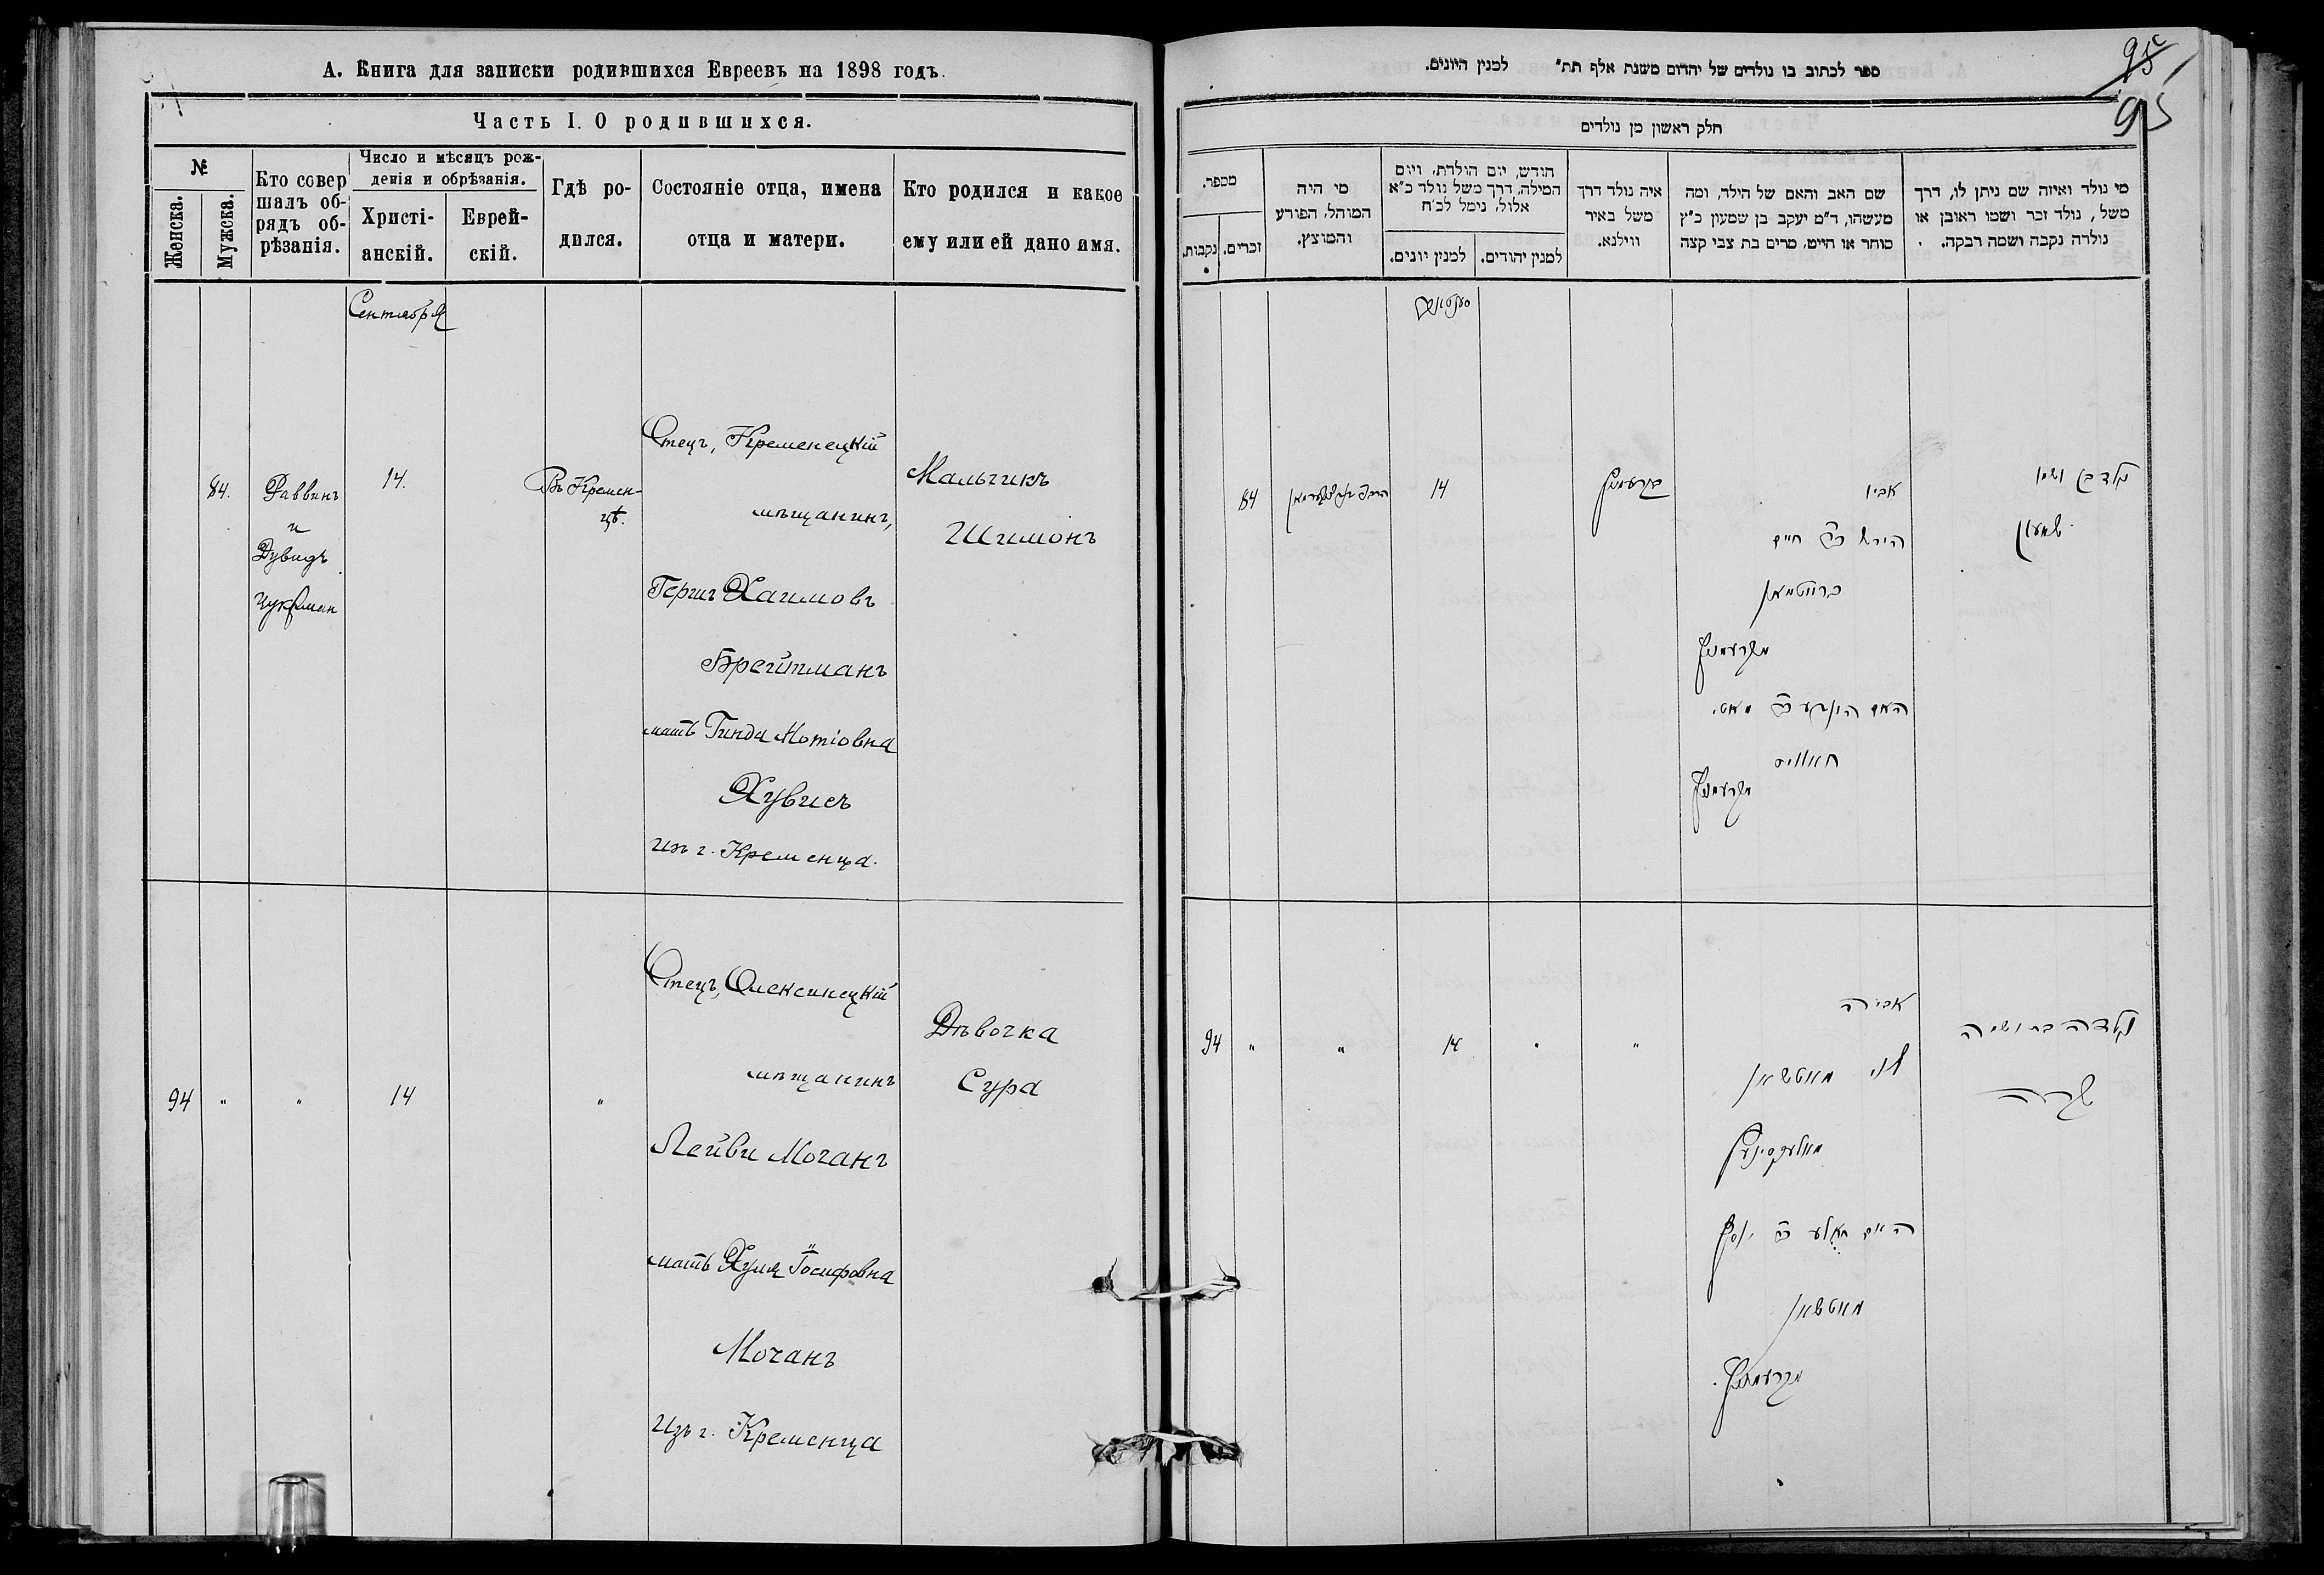 А. Книга для записки родившихся Евреевъ на 1898 годъ.
Часть I. О родившихся.
№
Женска.
Мужска.
Кто совер
шалъ об-
рядъ об-
рѣзанія.
Число и мѣсяцъ рож-
денія и обрѣзанія.
Христі-
анскій.
Еврей-
скій.
Гдѣ ро-
дился.
Состояніе отца, имена
отца и матери.
Кто родился и какое
ему или ей дано имя.
Сентября
84.
Раввинъ
и
Дувидъ
Цукерман
14.
Въ Кремен-
цѣ.
Отецъ, Кременецкій
мѣщанинъ,
Гершъ Хаимовъ
Брейтманъ
мать Гинда Мотіовна
Хувисъ
изъ г. Кременца.
Мальчикъ
Шимонъ
94
"
"
14
"
Отецъ, Олексинецкій
мѣщанинъ
Лейви Мочанъ
мать Хуля Іосифовна
Мочанъ
Изъ г. Кременца
Дѣвочка
Сура
ספר לכתוב בו נולדים של יהדום משנת אלף תת" למנין היונים.
95
95
חלק ראשון מן נולדים
מי נולד ואיזה שם ניתן לו, דרך
משל, נולד זכר ושמו ראובן או
נולדה נקבה ושמה רבקה.
שם האב והאם של הילד, ומה
מעשהו, ד"מ יעקב בן שמעון כ"ץ
סוחר או חייט, מרים בת צבי קצה
איה נולד דרך
משל באיר
ווילנא.
חודש, יום הולדת, ויום
המילה, דרך משל נולד כ"א
אלול, נימל לכ"ח
למנין יהודים.
למנין יונים.
מי היה
המוהל, הפורע
והמוצץ.
מספר.
זכרים.
נקבות.
סענטאבר
נולד בן ושמו
שמעון
אביו
הירש ב"ר חיים
ברייטמאן
מקרעמניץ
האם הינדע ב"ר מאטי
חאוויס
מקרעמניץ
קרעמניץ
14
84
נולדה בת ושמה
שרה
אביה
לוי מאטשאן
מאלעקסיניץ
האם חולע ב"ר יוסף
מאטשאן
מקרעמניץ.
"
"
14
"
"
94